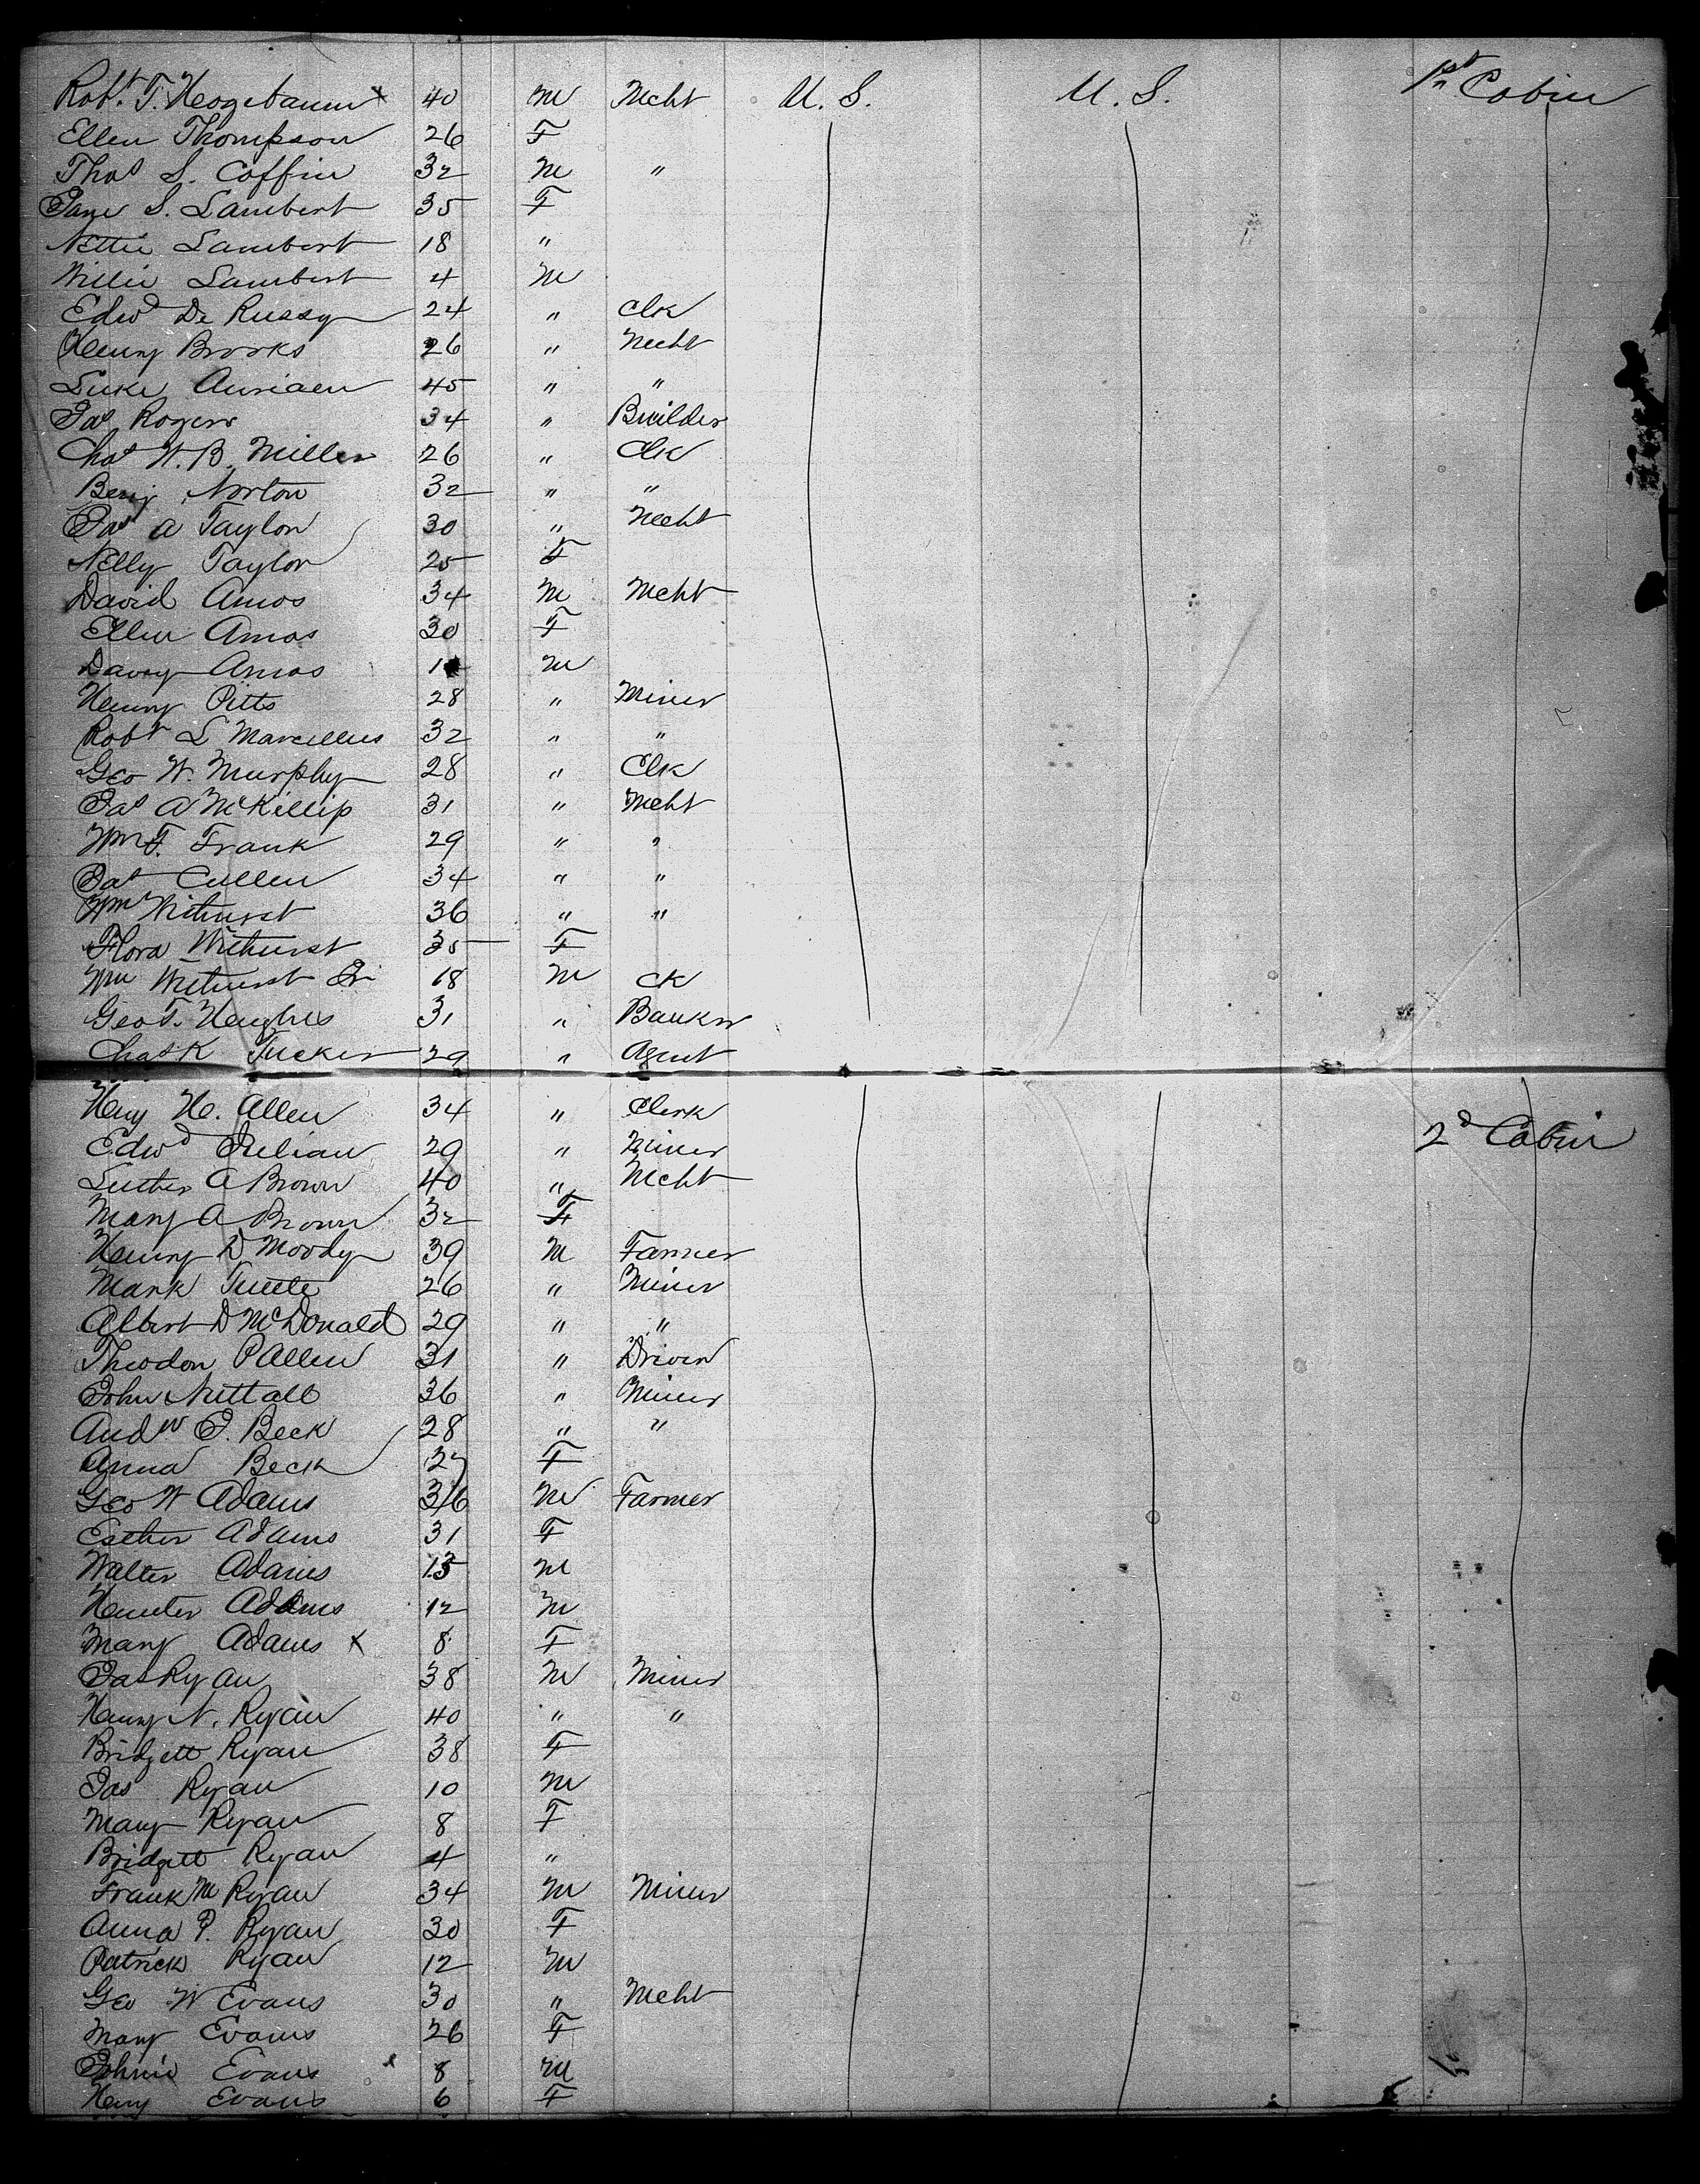 Robt. T. Hogebaum x 40 M Mcht U. S. U. S. 1st Cabin
Ellen Thompson 26 F
Thos S. Coffin 32 M "
Jane S. Lambert 35 F
Nettie Lambert 18 "
Willie Lambert 4 M
Edwd De Russy 24 " Clk
Henry Brooks 26 " Mcht
Luke 45 " "
Jas Rogers 34 " Builder
Chas W. B. Miller 26 " Clk
Benj. Norton 32 " "
Jas A Taylor 30 " Mcht
Nelly Taylor 25 F
David Amos 34 M Mcht
Ellen Amos 30 F
Davey Amos M
Henry Pitts 28 " Miner
Robt L Marcellus 32 " "
Geo W. Murphy 28 " Clk
Jas A McKillip 31 " Mcht
Wm F. Frank 29 " "
Jas Cullen 34 " "
Wm Withurst 36 " "
Flora Withurst 35 F
Wm Withurst Jr 18 M Ck
Geo T. Hughes 31 " Banker
Chas K Tucker 29 " Agent
Heny H. Allen 34 " Clerk 2d Cabin
Edwd Julian 29 " Miner
Luther A Brown 40 " Mcht
Mary A Brown 32 F
Henry D Moody 39 M Farmer
Mark Tuttle 26 " Miner
Albert D McDonald 29 " "
Theodor P Allen 31 " Driver
John Nuttall 36 " Miner
Andw J. Beck 28 " "
Anna Beck 27 F
Geo W Adams 36 M Farmer
Esther Adams 31 F
Walter Adams 13 M
Hunter Adams 12 M
Mary Adams x 8 F
Jas Ryan 38 M Miner
Henry N. Ryan 40 " "
Bridgett Ryan 38 F
Jas Ryan 10 M
Mary Ryan 8 F
Bridgett Ryan 4 "
Frank M Ryan 34 M Miner
Anna P. Ryan 30 F
Patrick Ryan 12 M
Geo W Evans 30 " Mcht
Mary Evans 26 F
Johnie Evans 8 M
Heny Evans 6 F